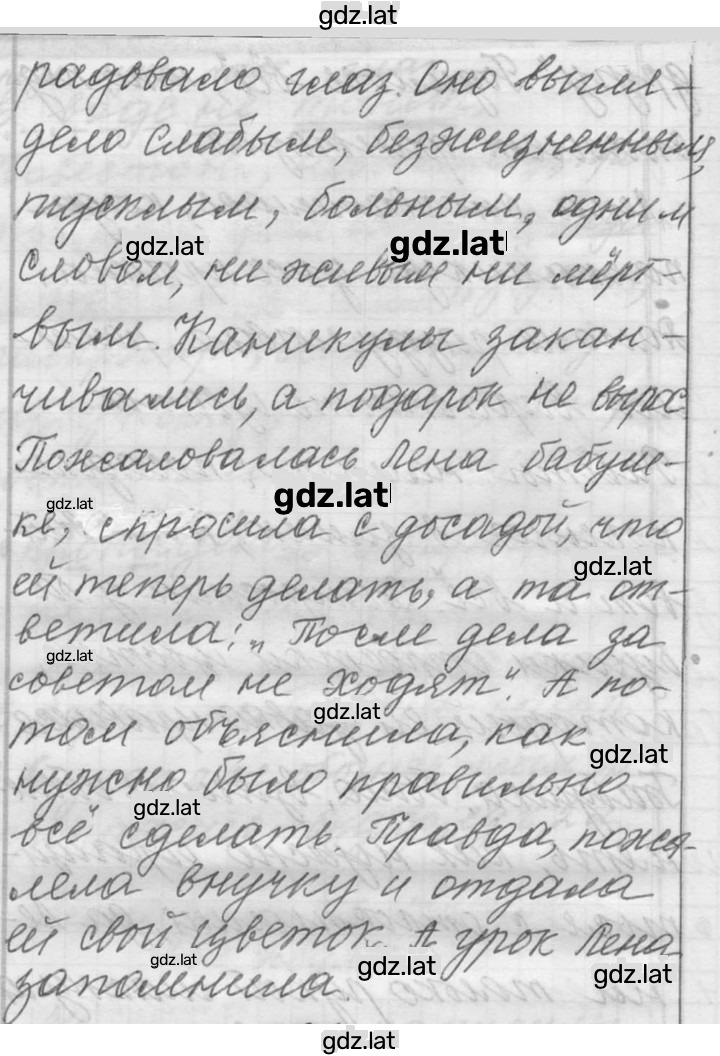 gdz.lat
радовало глаз. Оно выгля-
дело слабым, безжизненным,
тусклым, больным, одним
gdz.lat gdz.lat
словом, ни живым ни мёрт-
вым. Каникулы закан-
чивались, а подарок не вырос.
Пожаловалась Лена бабуш-
gdz.lat gdz.lat
ке, спросила с досадой, что
gdz.lat
ей теперь делать, а та от-
ветила: „После дела за
gdz.lat
советом не ходят“. А по-
gdz.lat
том объяснила, как
gdz.lat
нужно было правильно
gdz.lat
всё сделать. Правда, пожа-
лела внучку и отдала
ей свой цветок. А урок Лена
gdz.lat gdz.lat gdz.lat
запомнила.
gdz.lat